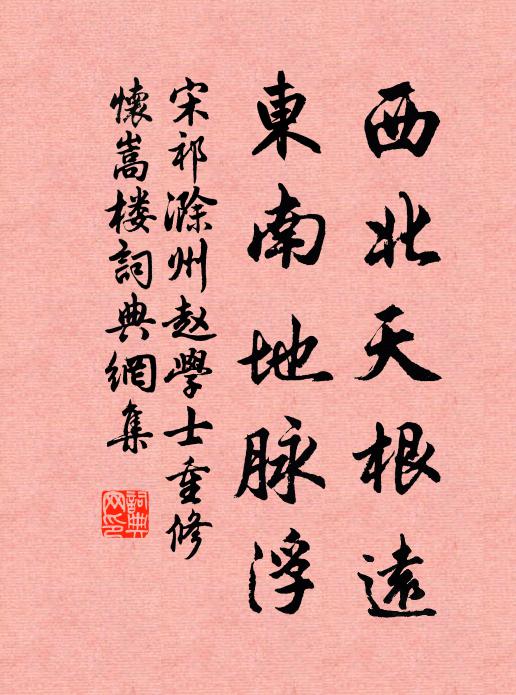 西北天根遠
東南地脉浮
宋祁滁州赵學士重修
懷嵩楼詞典網集
詞典网印